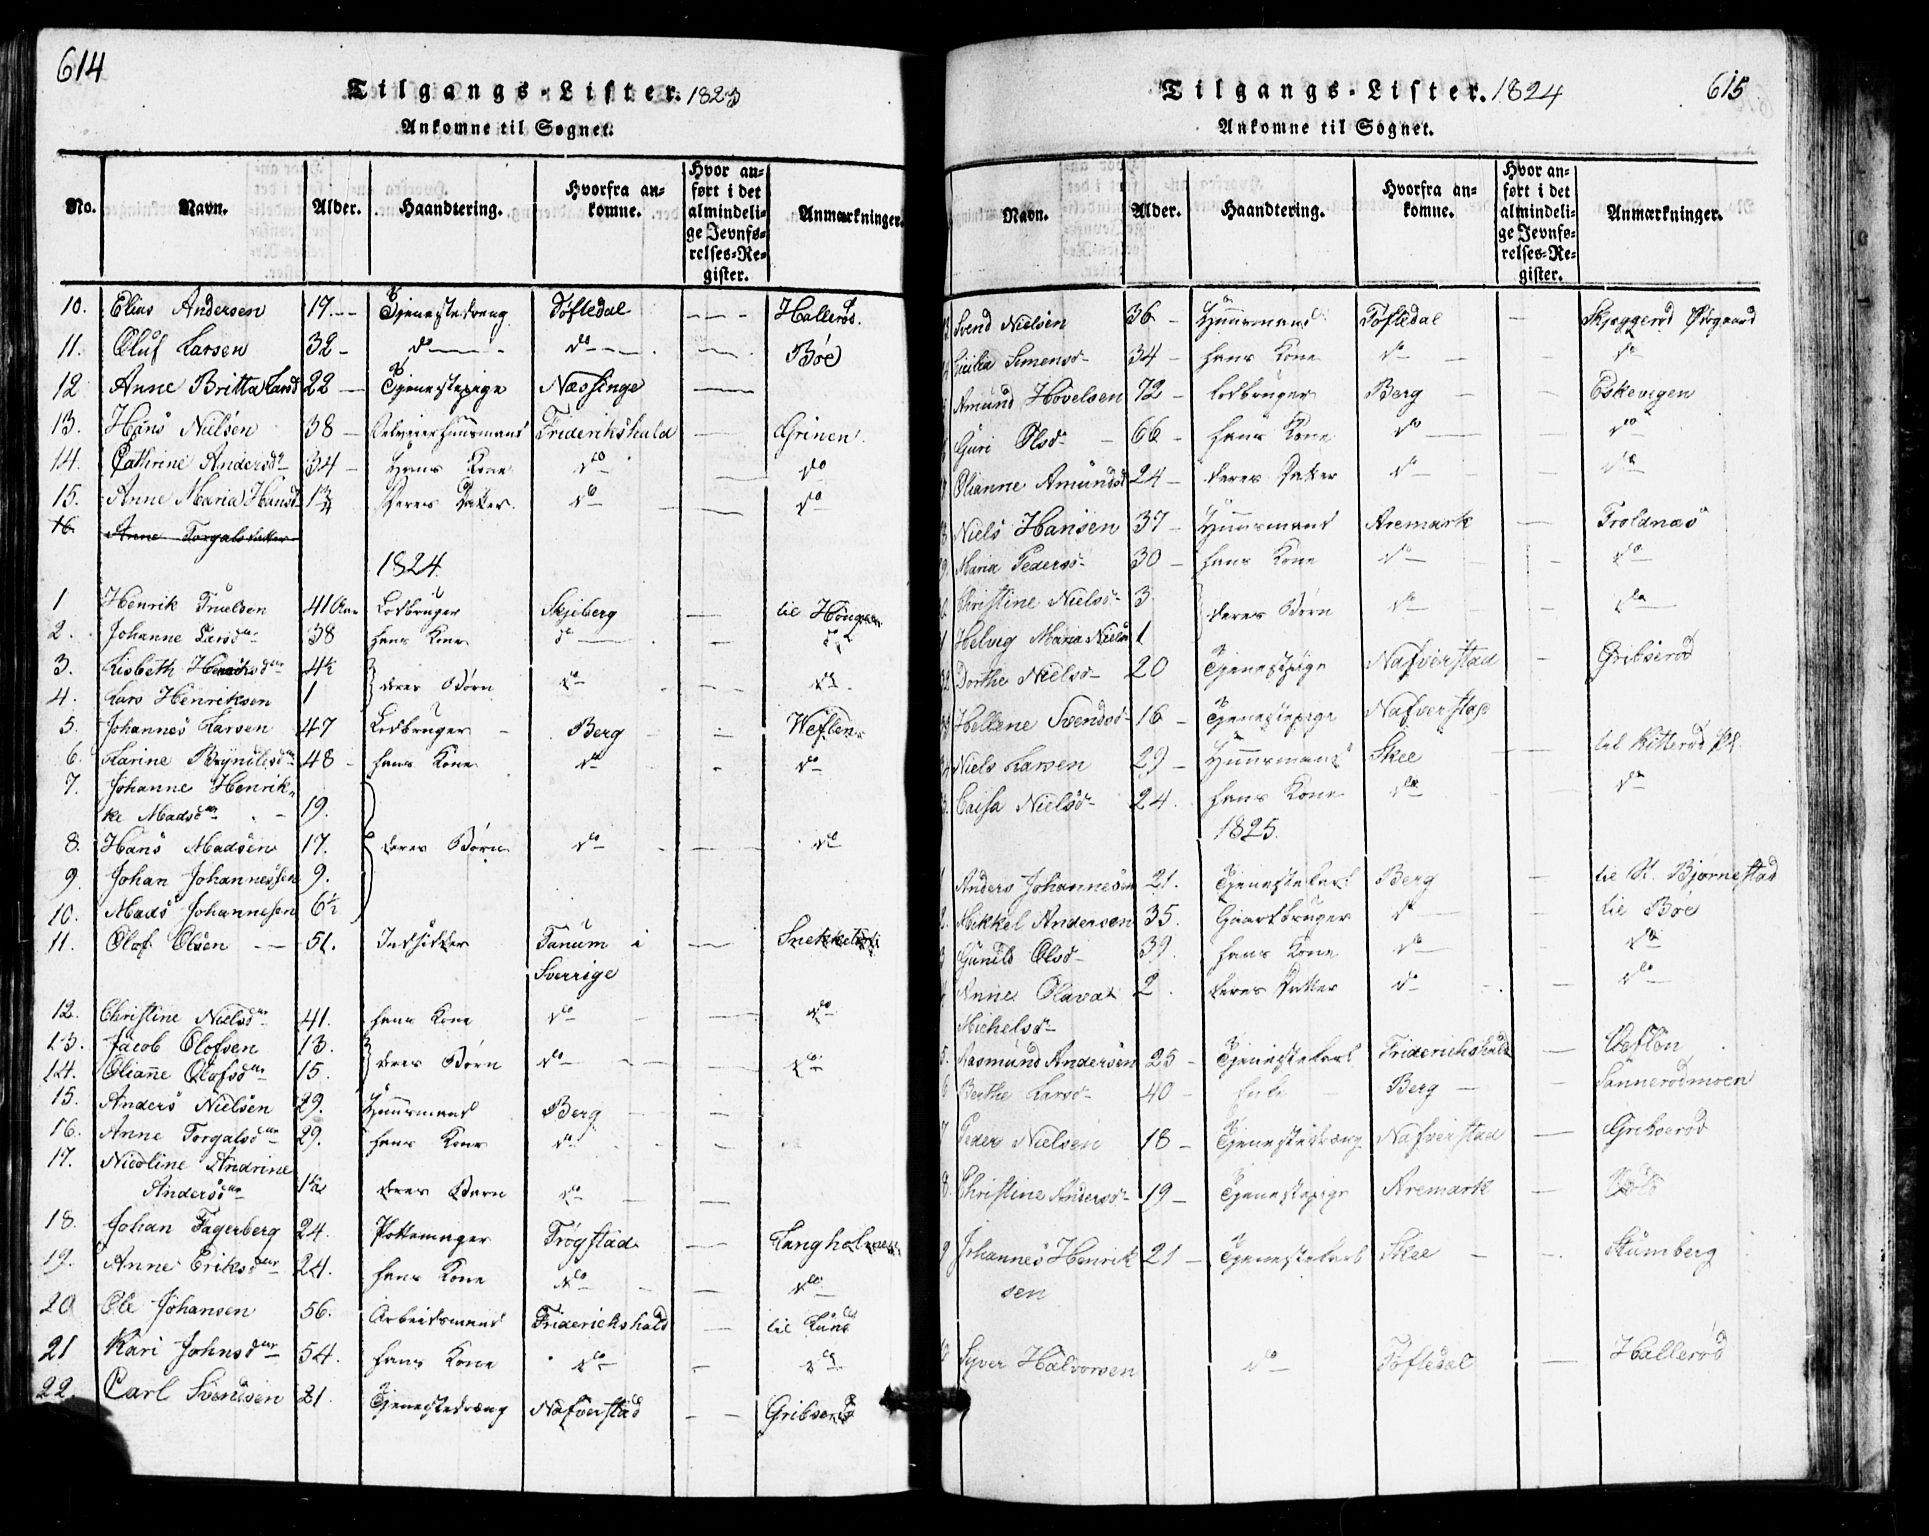 614
Tilgangs-Lister. 1823
Ankomne til Sognet.
No. Navn. Alder. Haandtering. Hvorfra ankomne. Hvor anført i det almindelige Jevnførelses-Register. Anmærkninger.
10. Elias Andersen 17. Tjenestedreng Tøftedal Hallerød.
11. Oluf Larsen 32 do do Bøe
12 Anne Britta Larsd 22 Tjenestepige Næssinge
13. Hans Nielsen 38 Huusmand Frideriksha​ld Grinen
14. Cathrine Andersdr 34 Hans Kone do do
15. Anne Maria Hansd Deres Datter do do
16 Anne Torgalsdatter
1824.
1 Henrik Truelsen 41 Aar Lodbruger Skjeberg til
2. Johanne Larsdr 38 hans Kone do do
3. Lisbeth Henriksdr 4½ deres Børn do do
4. Lars Henriksen 1
5. Johannes Larsen 47 Lodbruger Berg Weflen
6. Karine Bryndilsdr 48 hans Kone do do
7. Johanne Henrik-
ke Madsdr 19.
8. Hans Madsen 17. deres Børn do do
9. Johan Johannessen 9.
10. Mads Johannesen 6½
11. Olof Olsen 51. Indsidder Tanum i
Sverrige
12. Christine Nielsdr 41. hans Kone do do
13. Jacob Olofsen 13. deres Børn do do
14. Olianne Olofsdr 15.
15. Anders Nielsen 29. Huusmand Berg
16. Anne Torgalsdr 29. hans Kone do
17. Nicoline Andrine
Andersdr deres Barn do
18. Johan Fagerberg 24. Pottemager Trøgstad Langholmen
19. Anne Eriksdr 24. hans Kone do do
20 Ole Johansen 56. Arbeidsmand Friderichshald til Lund
21 Kari Johnsdr 54. hans Kone do do
22. Carl Svendsen 21. Tjenestedræng Nafverstad Gribserød
615
Tilgangs-Lister. 1824
Ankomne til Sognet.
Navn. Alder. Haandtering. Hvorfra ankomne. Hvor anført i det almindelige Jevnførelses-Register. Anmærkninger.
Svend Nielsen 36 Huusmand Tøftedal Skjeggerød Øvgaard
Cicilia Simensd 34 hans Kone do do
Amund Hovelsen 72 Lodbruger Berg Eskevigen
Guri Olsd 66 hans Kone do do
Olianne Amundsd 24 deres Datter do do
Niels Hansen 37 Huusmand Aremark Troldnæs
Maria Pedersd 30 hans Kone do do
Christine Nielsd 3 deres Børn do do
Helvig Maria Nielsd 1
Dorthe Nielsd 20 Tjenestepige Nafverstad Gribserød
Hellene Svendsd 16 Tjenestepige Nafverstad
Niels Larsen 29 Huusmand Skee til Kitterød Pl.
Caisa Nielsd 24. hans Kone do do
1825.
Anders Johannesen 21. Tjenestekarl Berg til N. Bjørnestad
2. Mikkel Andersen 35. Gaardbruger do til Bøe
3 Gunild Olsd 39. hans Kone do do
Anne Olava 2. deres Datter do do
Michelsd
5. Rasmund Andersen 25 Tjenestekarl Friderichshald Veflen
6 Berthe Larsd 40 Enke Berg Sannerødmoen
7 Peder Nielsen 18 Tjenestedræng Nafverstad Gribserød
8. Christine Andersd 19 Tjenestepige Aremark
9 Johannes Henrik 21 Tjenestekarl Skee Stumberg
sen
Syver Halvorsen do Tøftedal Hallerød